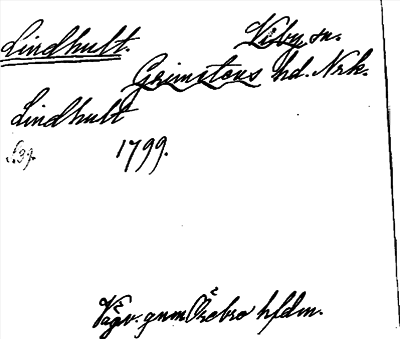 Lindhult. Viby sn.
Grimstens hd. Nrk.
Lindhult
1799.
Vägv. gnm Örebro hfdm.